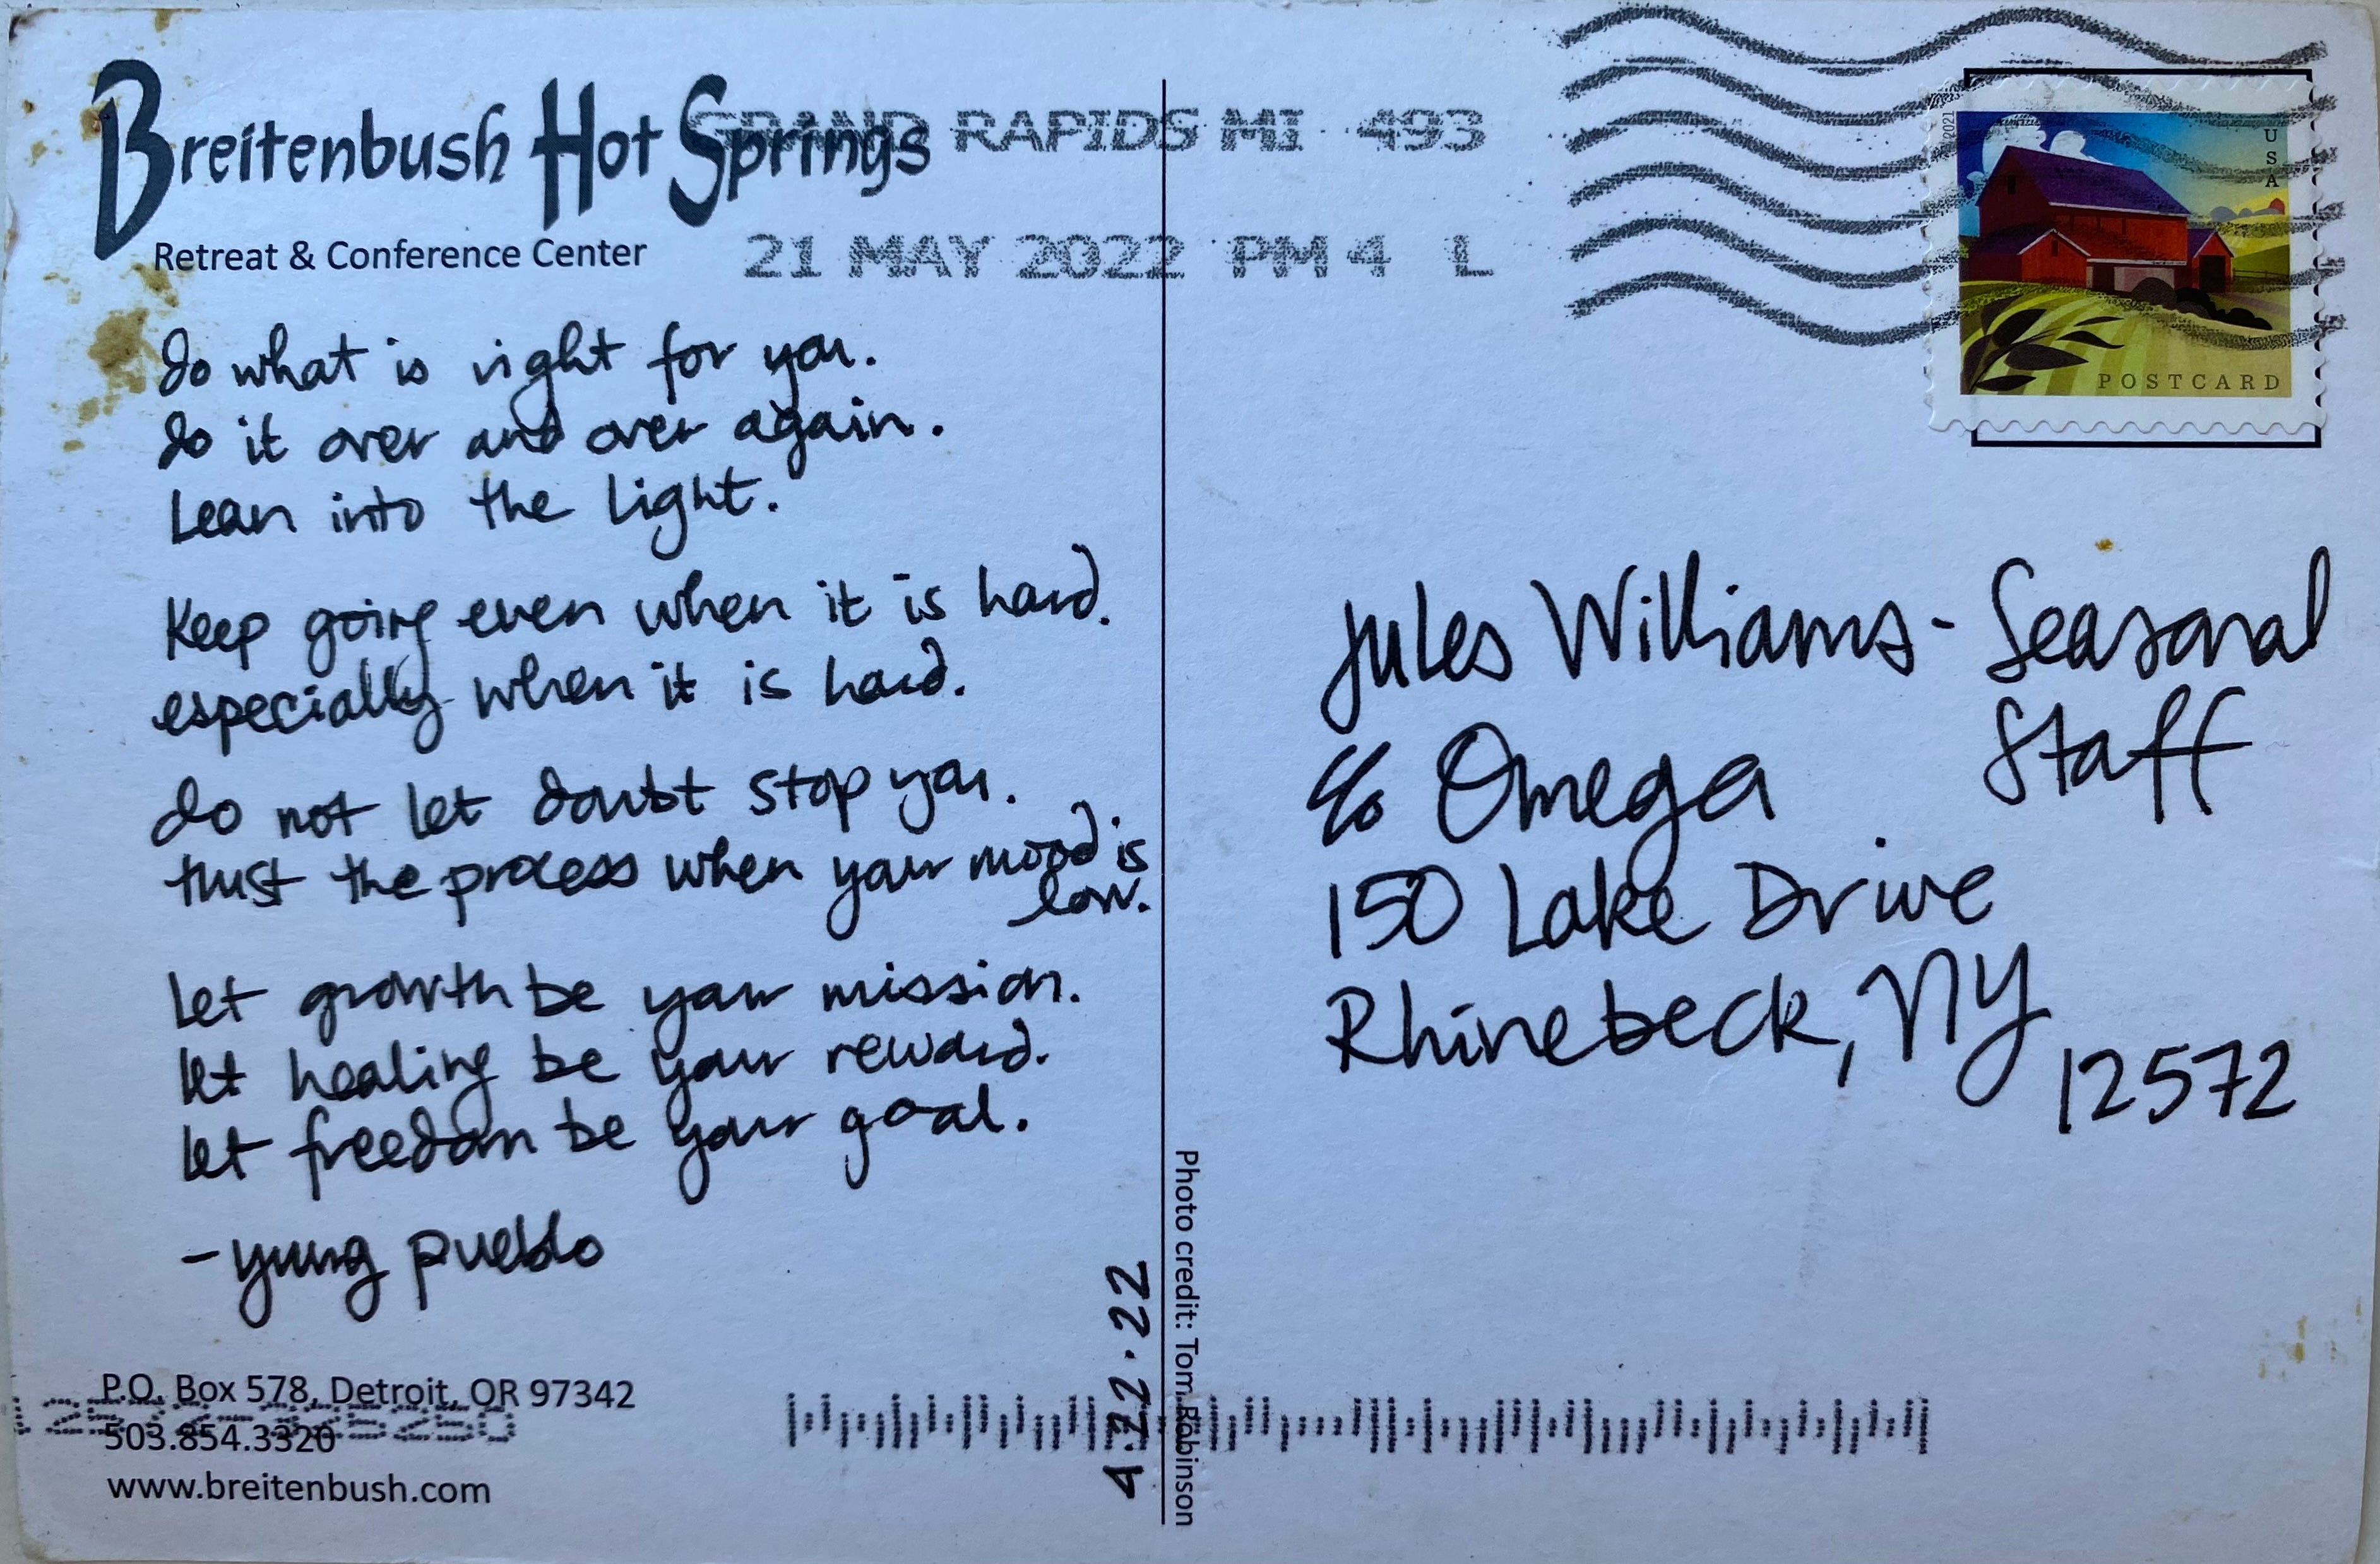 Breitenbush Hot Springs
Retreat & Conference Center
GRAND RAPIDS MI 493
21 MAY 2022 PM 4 L
2021
USA
POSTCARD
do what is right for you.
do it over and over again.
Lean into the light.
Keep going even when it is hard.
especially when it is hard.
do not let doubt stop you.
trust the process when your mood is
low.
Let growth be your mission.
let healing be your reward.
let freedom be your goal.
- yung pueblo
Jules Williams - Seasonal
Staff
c/o Omega
150 Lake Drive
Rhinebeck, NY
12572
4.22.22
Photo credit: Tom Robinson
P.O. Box 578, Detroit, OR 97342
503.854.3320
www.breitenbush.com